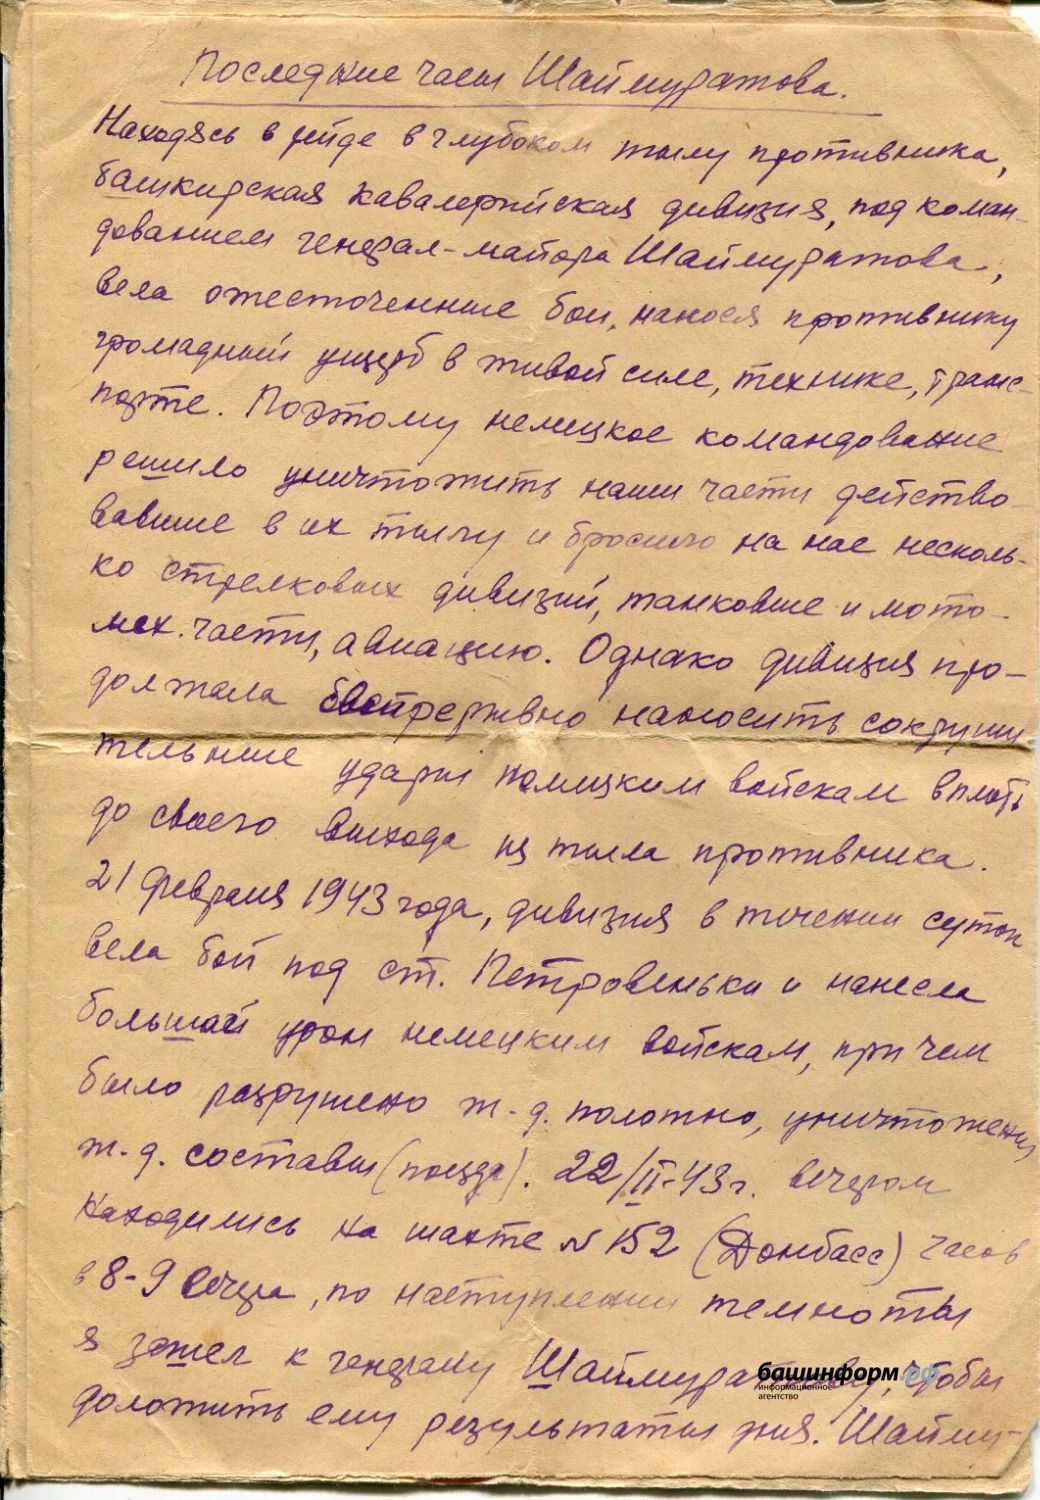 Последние часы Шаймуратова.
Находясь в рейде в глубоком тылу противника,
башкирская кавалерийская дивизия, под коман-
дованием генерал-майора Шаймуратова,
вела ожесточенные бои, нанося противнику
громадный ущерб в живой силе, технике, транс-
порте. Поэтому немецкое командование
решило уничтожить наши части действо-
вавшие в их тылу и бросило на нас несколь-
ко стрелковых дивизий, танковые и мото-
мех. части, авиацию. Однако дивизия про-
должала наносить сокруши
тельные удары немецким войскам вплоть
до своего выхода из тыла противника.
21 февраля 1943 года, дивизия в течении суток
вела бой под ст. Петровеньки и нанесла
большой урон немецким войскам, при чем
было разрушено ж-д. полотно, уничтожены
ж-д. составы (поезда). 22/II-43г. вечером
находились на шахте №152 (Донбасс) часов
в 8-9 вечера, по наступлении темноты
я зашел к генералу Шаймуратову, чтобы
доложить ему результаты дня. Шайму-
башинформ.рф
информационное
агентство